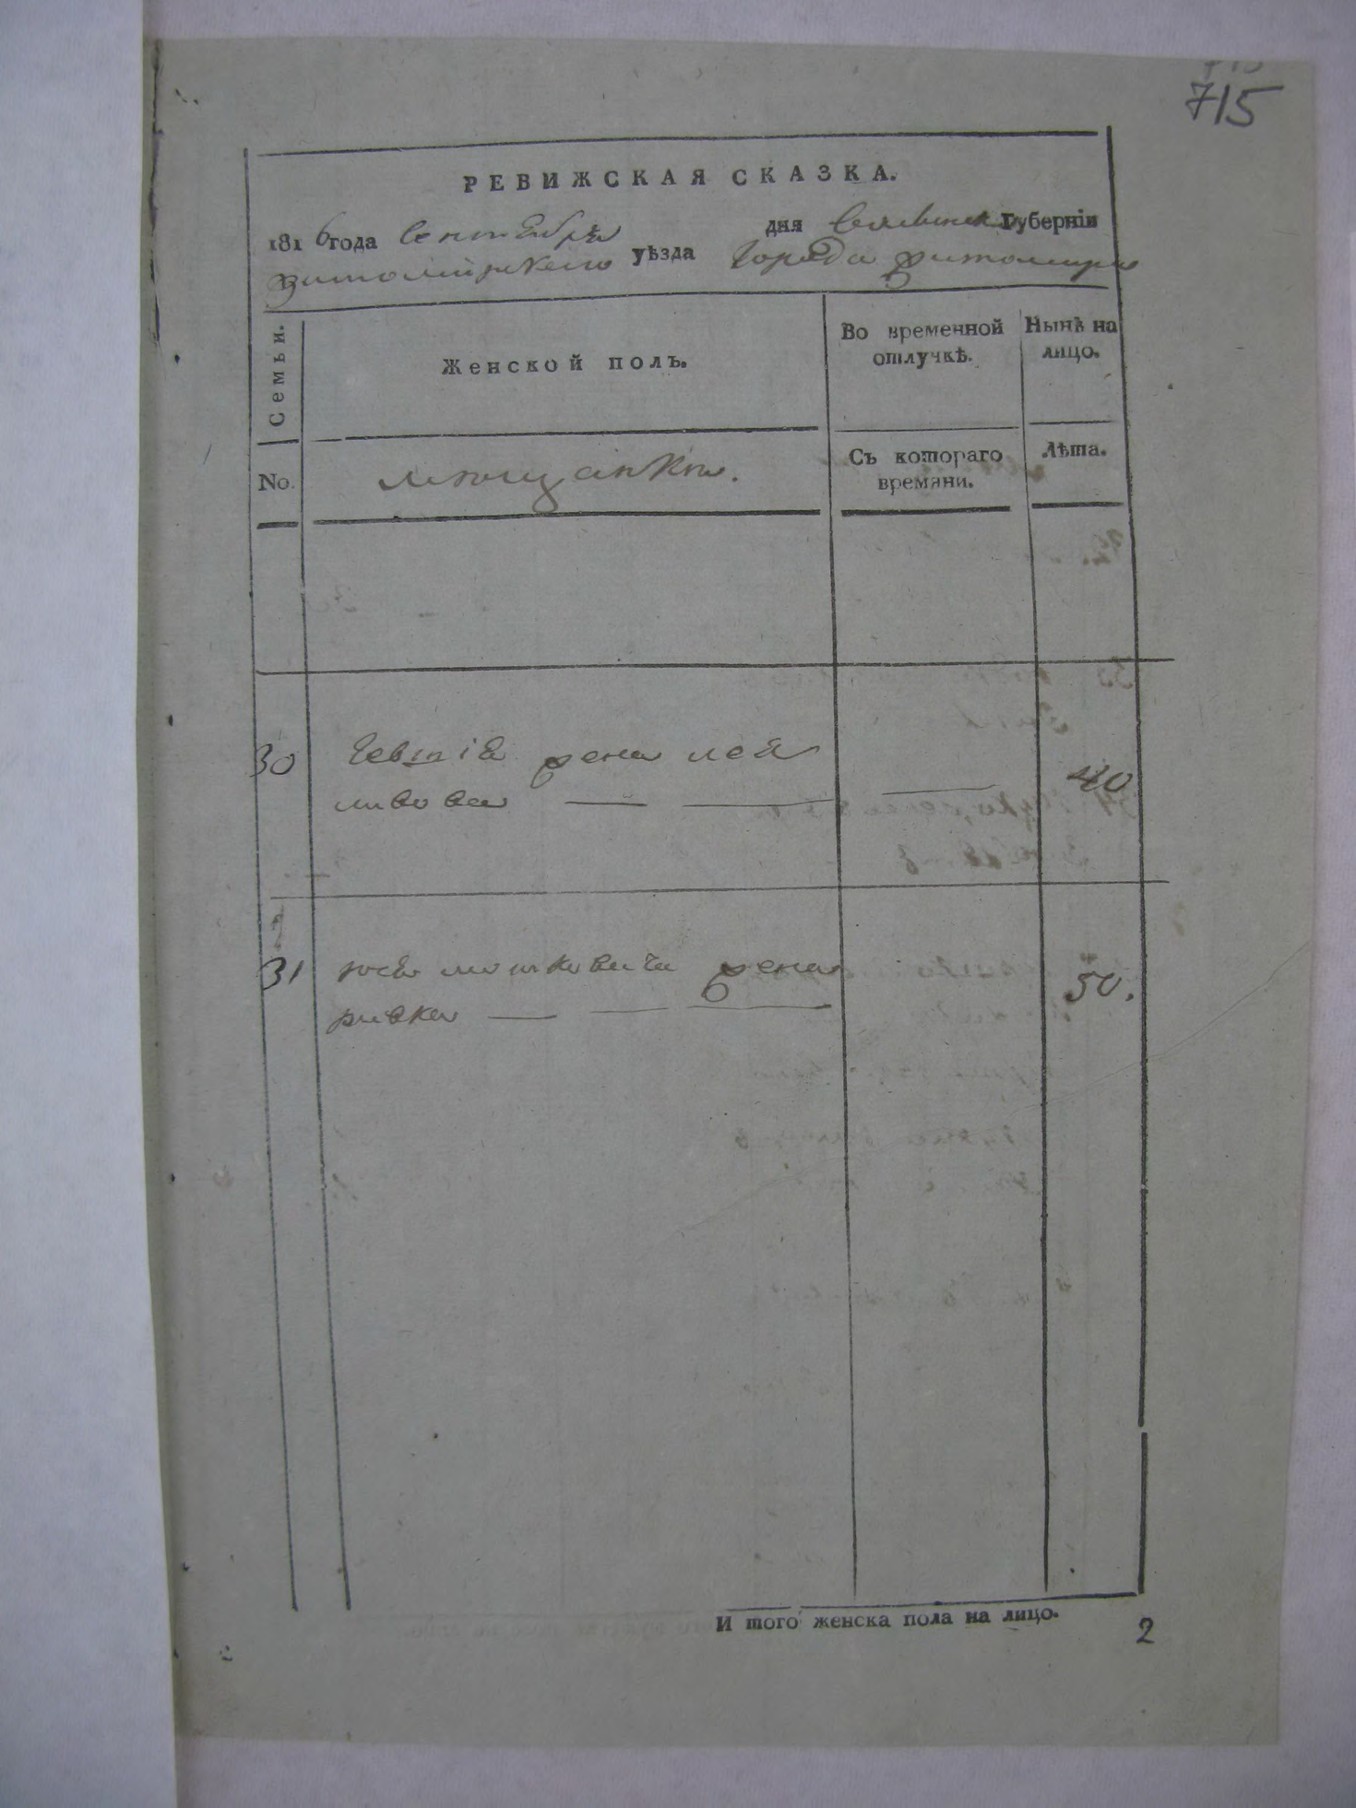 715
РЕВИЖСКАЯ СКАЗКА.
1816 года Сентября дня Волынской Губернїи
Житомирскаго уѣзда Города Житомира
Семьи.
Женской полъ.
Во временной отлучкѣ.
Нынѣ на лицо.
No.
мещанки.
Съ котораго времяни.
Лѣта.
30 жена лея 40
31 мошковича жена 50.
ривка
И того женска пола на лицо. 2